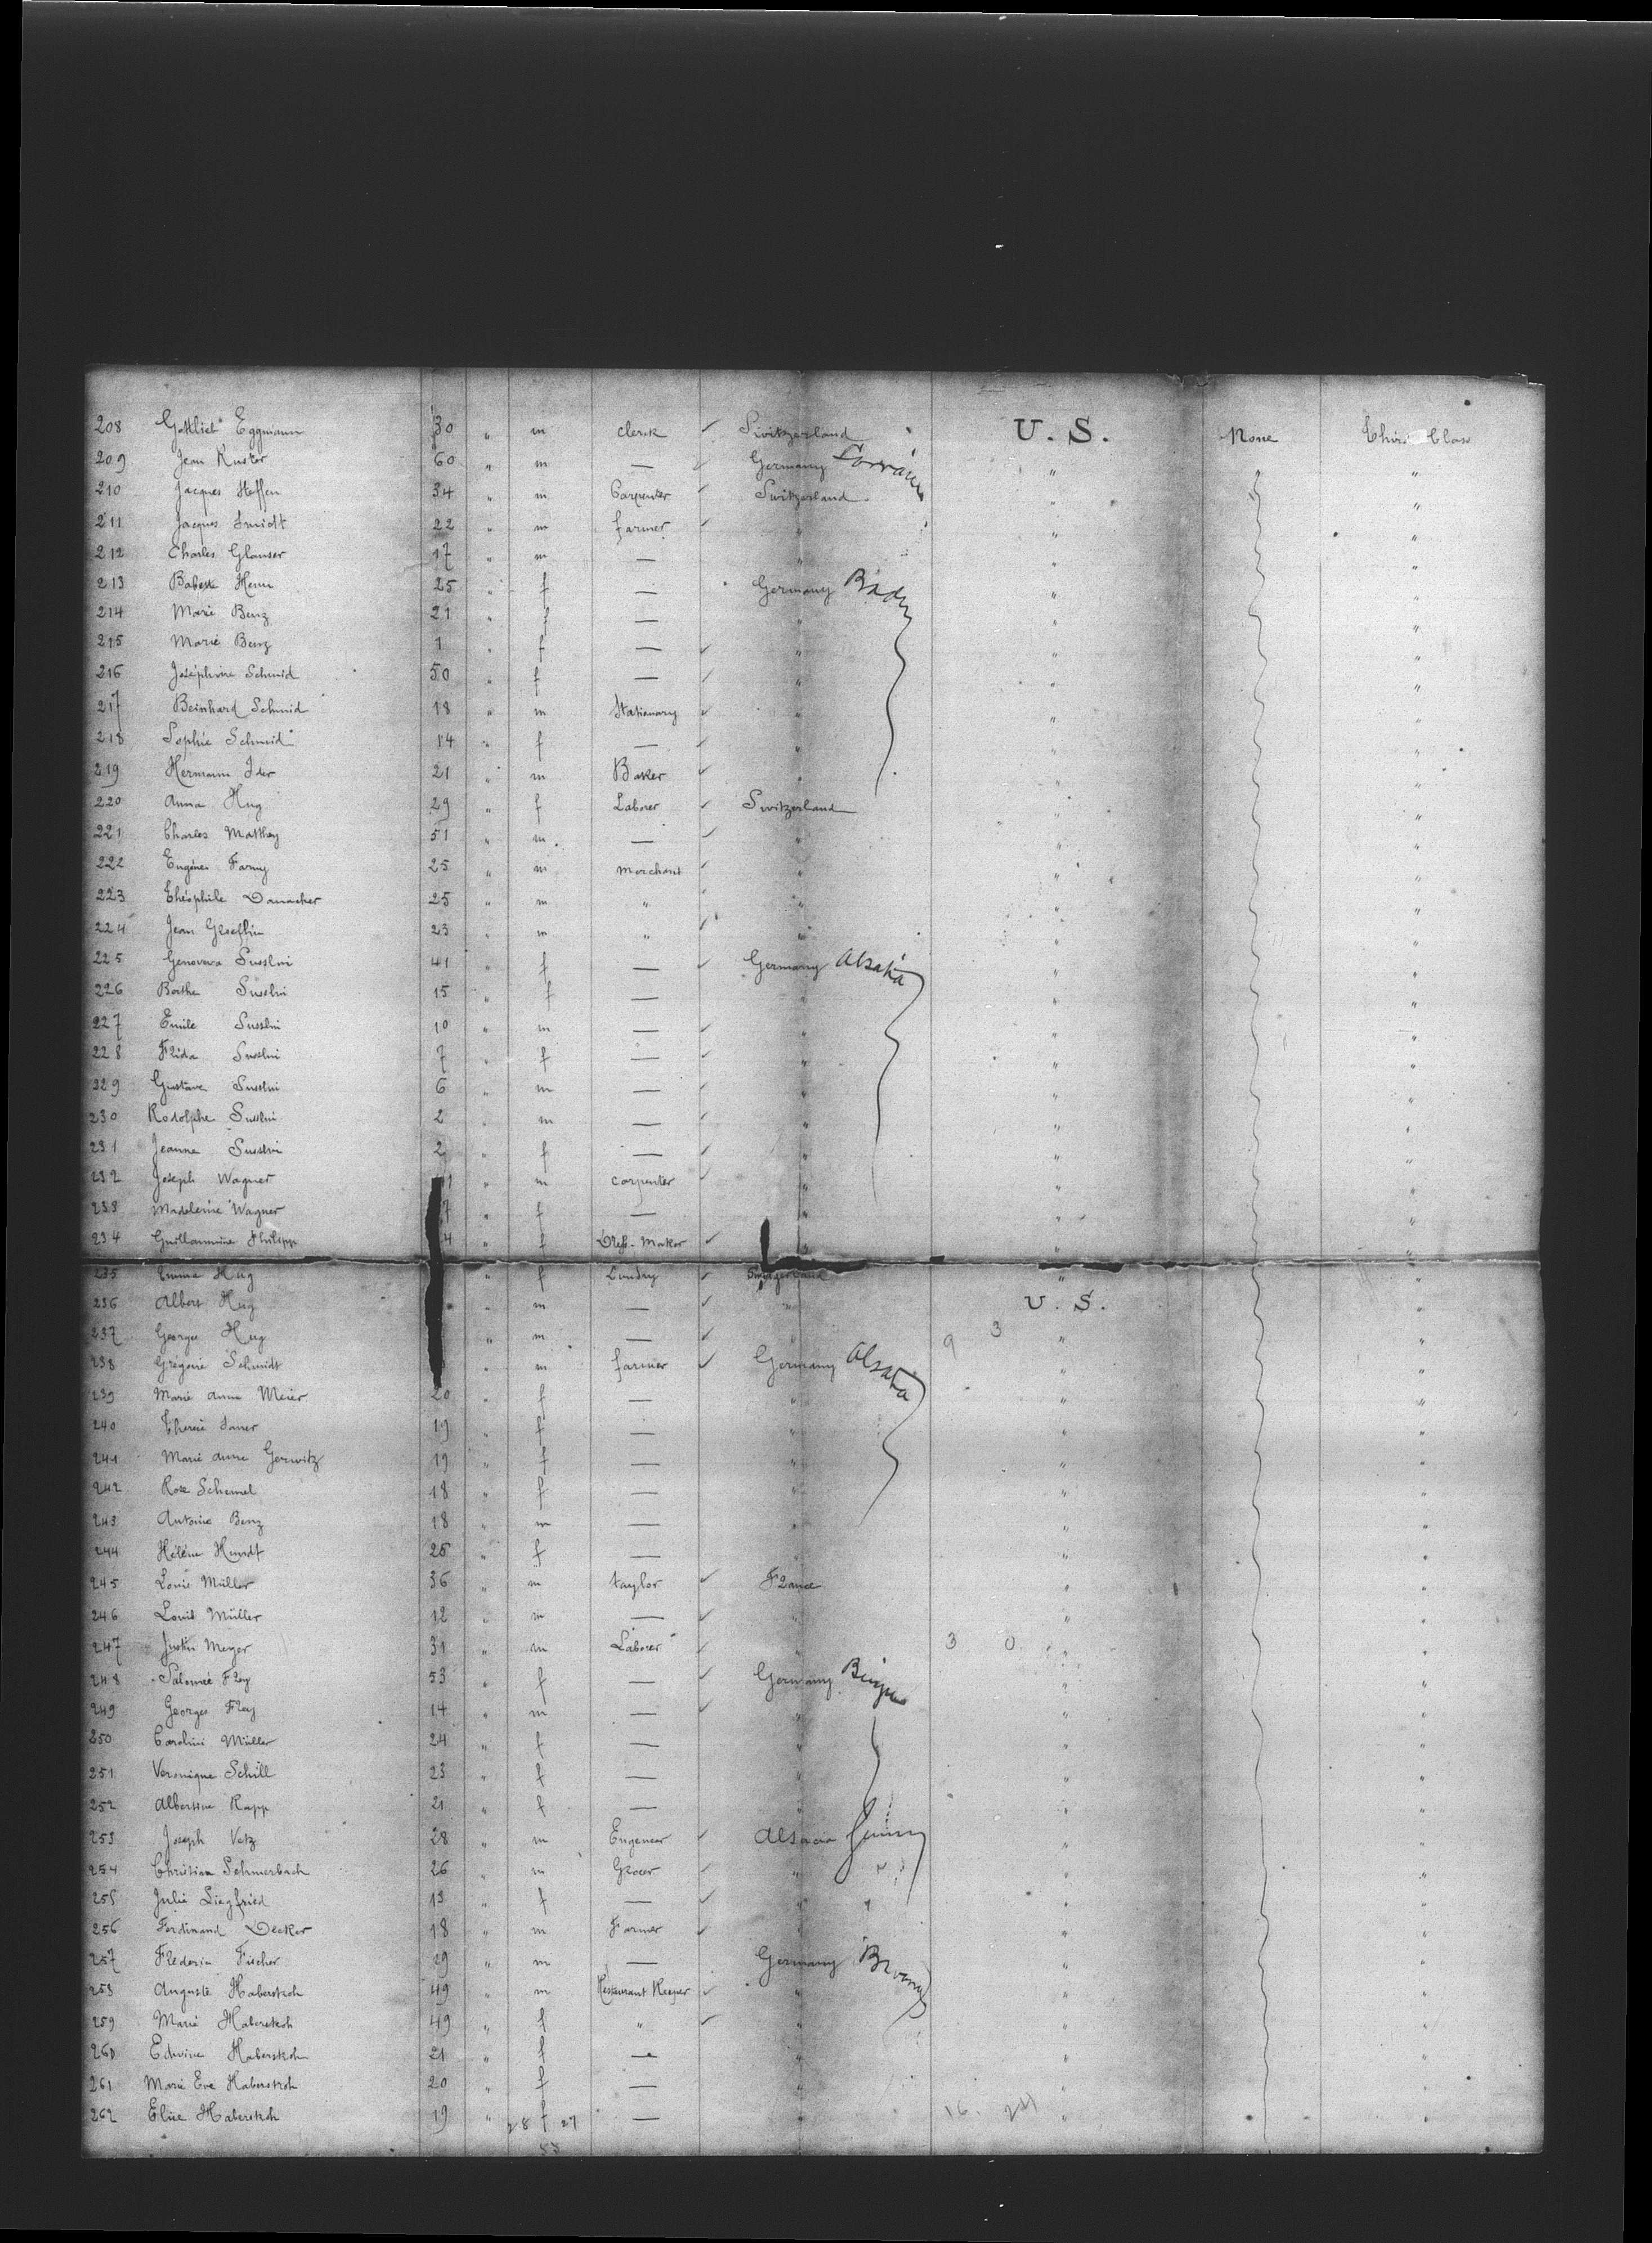 208 Gottlieb Eggmann 30 " m Clerck ✓ Switzerland U. S. None Third Class
209 Jean Kuster 60 " m — ✓ Germany Lorraine " "
210 Jacques Steffen 34 " m Carpenter ✓ Switzerland " "
211 Jacques Smidt 22 " m farmer ✓ " " "
212 Charles Glauser 17 " m — " " "
213 Babette Henn 25 " f — Germany Baden " "
214 Marie Benz 21 " f — " " "
215 Marie Benz 1 " f — ✓ " " "
216 Joséphine Schmid 50 " f — ✓ " " "
217 Beinhard Schmid 18 " m Stationary ✓ " " "
218 Sophie Schmid 14 " f — ✓ " " "
219 Hermann Ider 21 " m Baker ✓ " " "
220 Anna Hug 29 " f Laborer ✓ Switzerland " "
221 Charles Matthey 51 " m — ✓ " " "
222 Eugène Farny 25 " m merchant ✓ " " "
223 Théophile Danacher 25 " m " ✓ " " "
224 Jean 23 " m " ✓ " " "
225 Genoveva Susslin 41 " f — ✓ Germany Alsatia " "
226 Berthe Susslin 15 " f — " " "
227 Emile Susslin 10 " m — ✓ " " "
228 Frida Susslin 7 " f — ✓ " " "
229 Gustave Susslin 6 " m — ✓ " " "
230 Rodolphe Susslin 2 " m — ✓ " " "
231 Jeanne Susslin 2 " f — ✓ " " "
232 Joseph Wagner 1 " m carpenter ✓ " " "
233 Madeleine Wagner 7 " f — " " "
234 Guillaumine Philipp 4 " f Dress-Maker ✓ " "
235 Emma Hug " f Lundry ✓ Switzerland " "
236 Albert Hug " m — ✓ " U. S. "
237 Georges Hug " m — ✓ " 9 3 " "
238 Grégoire Schmidt " m farmer ✓ Germany Alsatia "
239 Marie Anne Meier 20 " f — " " "
240 Therese 19 " f — " " "
241 Marie Anne Gerwitz 19 " f — " " "
242 Rose Schemel 18 " f — " " "
243 Antoine Benz 18 " m — " " "
244 Hélène Hundt 25 " f — " "
245 Louis Müller 36 " m taylor ✓ France " "
246 Louis Müller 12 " m — ✓ " " "
247 Justin Meyer 31 " m Laborer ✓ " 3 0 " "
248 Salomé Frey 53 " f — ✓ Germany " "
249 Georges Frey 14 " m — ✓ " " "
250 Caroline Müller 24 " f — " " "
251 Veronique Schill 23 " f — " " "
252 Albertine Rapp 21 " f — " " "
253 Joseph Vetz 28 " m Engeneer ✓ Alsacia " "
254 Christian Schmerbach 26 " m Grocer ✓ " " "
255 Julie Siegfried 13 " f — ✓ " " "
256 Ferdinand Decker 18 " m Farmer ✓ " " "
257 Frederic Fischer 29 " m — Germany " "
258 Auguste Haberstroh 49 " m Restaurant Keeper ✓ " " "
259 Marie Haberstroh 49 " f " ✓ " " "
260 Edwine Haberstroh 21 " f — " " "
261 Marie Eve Haberstroh 20 " f — " " "
262 Elise Haberstroh 19 " f — 16. 24 " "
28 27